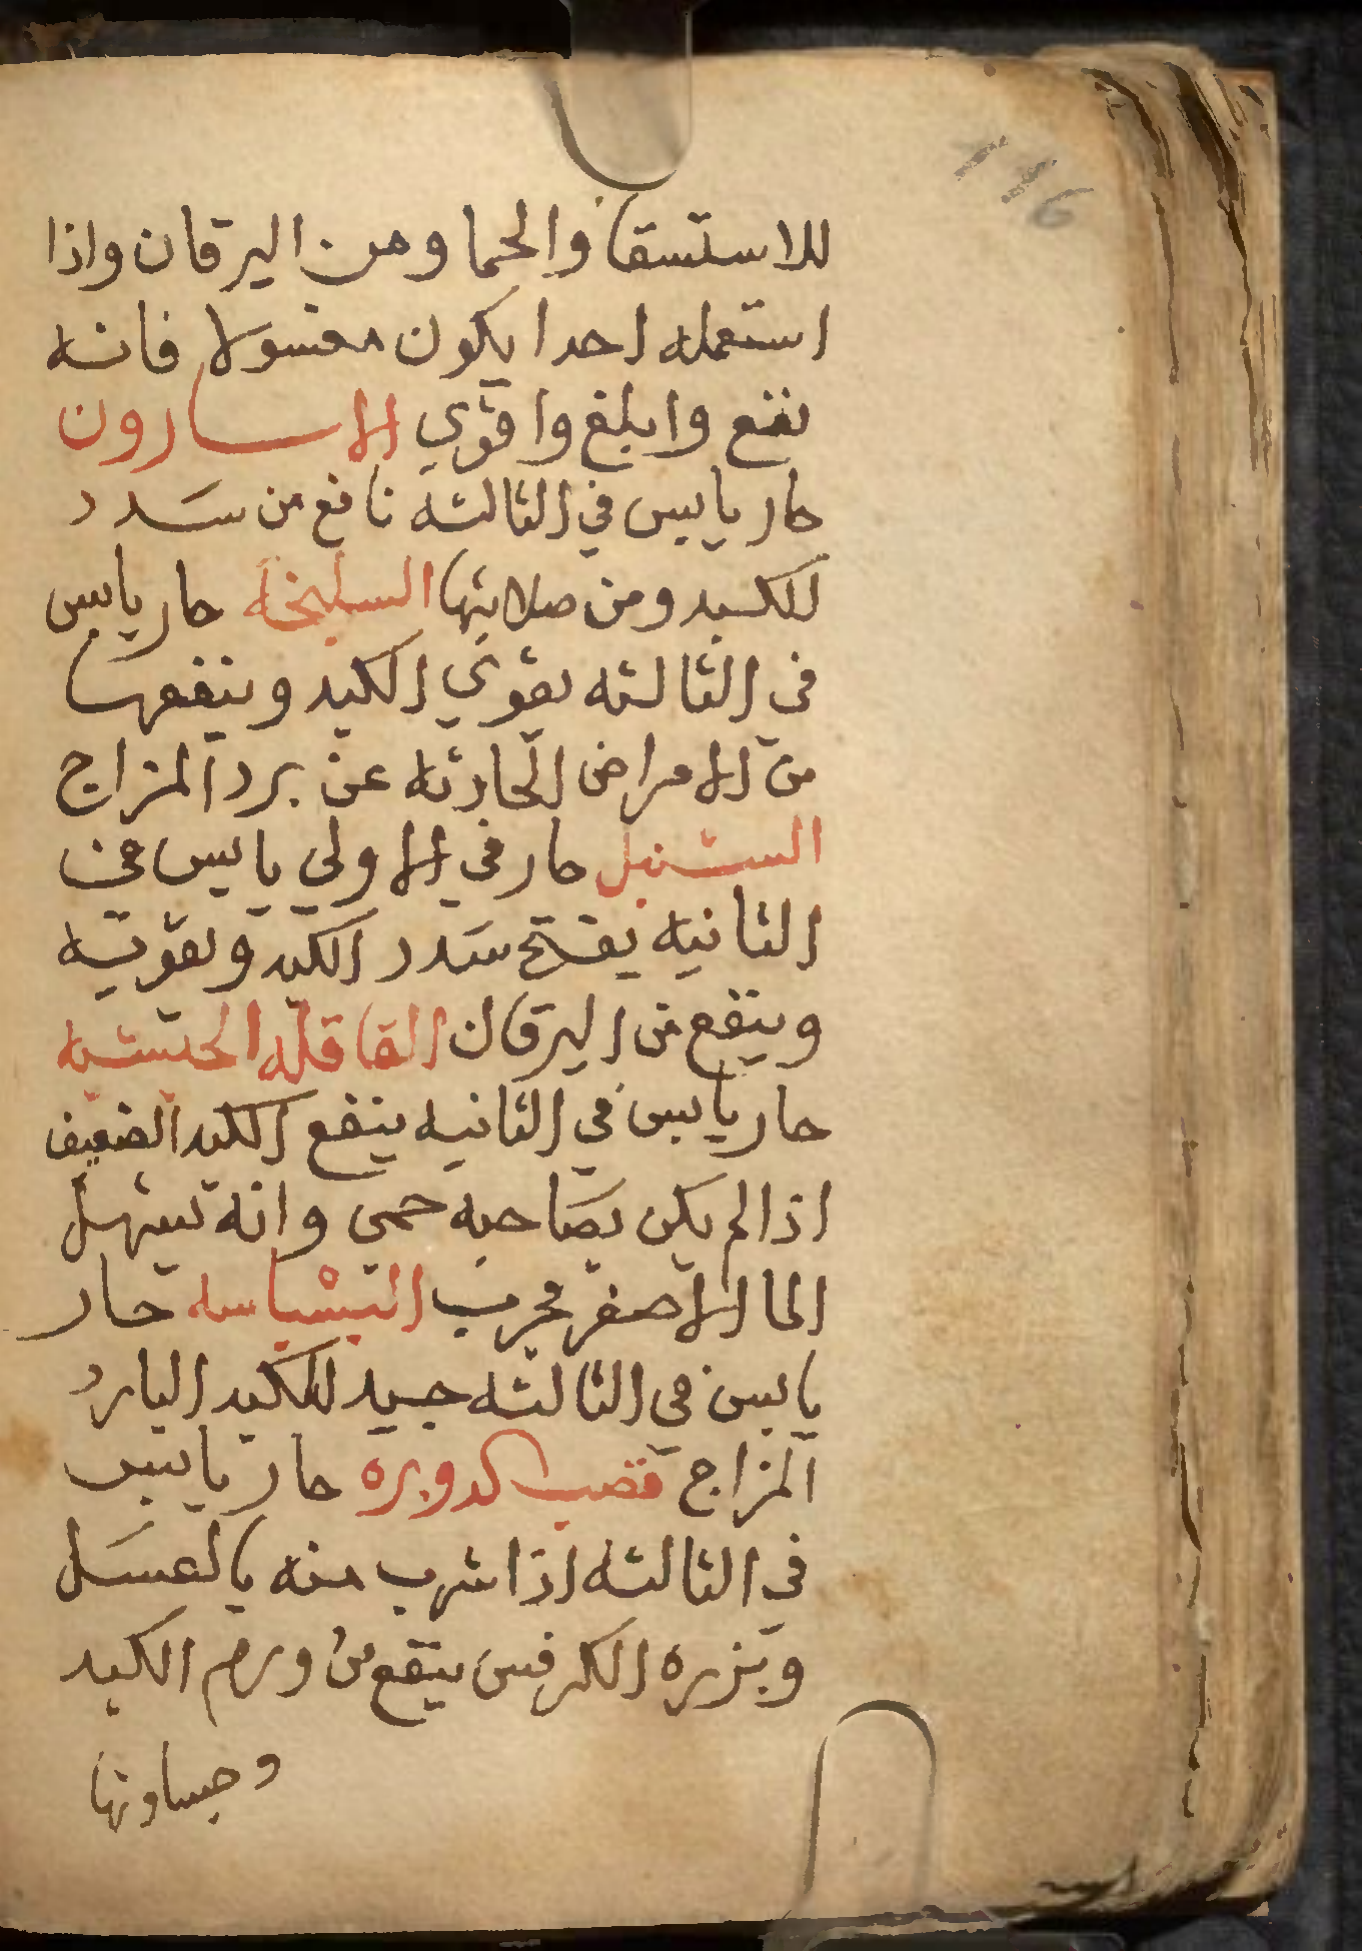 116
للاستسقا والحما ومن اليرقان واذا
استعمله احدا يكون مغسولا فانه
نفع وابلغ واقوي الاسارون
حار يابس في الثالثه نافع من سدد
للكبد ومن صلابتها السليخه حار يابس
في الثالثه يقوي الكبد وينفعها
من الامراض الحادثه عن برد المزاج
السنبل حار في الاولي يابس في
الثانيه يفتح سدد الكبد ويقويه
وينفع من اليرقان القاقله الحبشيه
حار يابس في الثانيه ينفع الكبد الضعيف
اذا لم يكن يصاحبه حمى وانه يسهل
الما الاصفر مجرب البسباسه حار
يابس في الثالثه جيد للكبد البارد
المزاج قصب الدويره حار يابس
في الثالثه اذا شرب منه بالعسل
وبزره الكرفس ينفع من ورم الكبد
وجساوتها